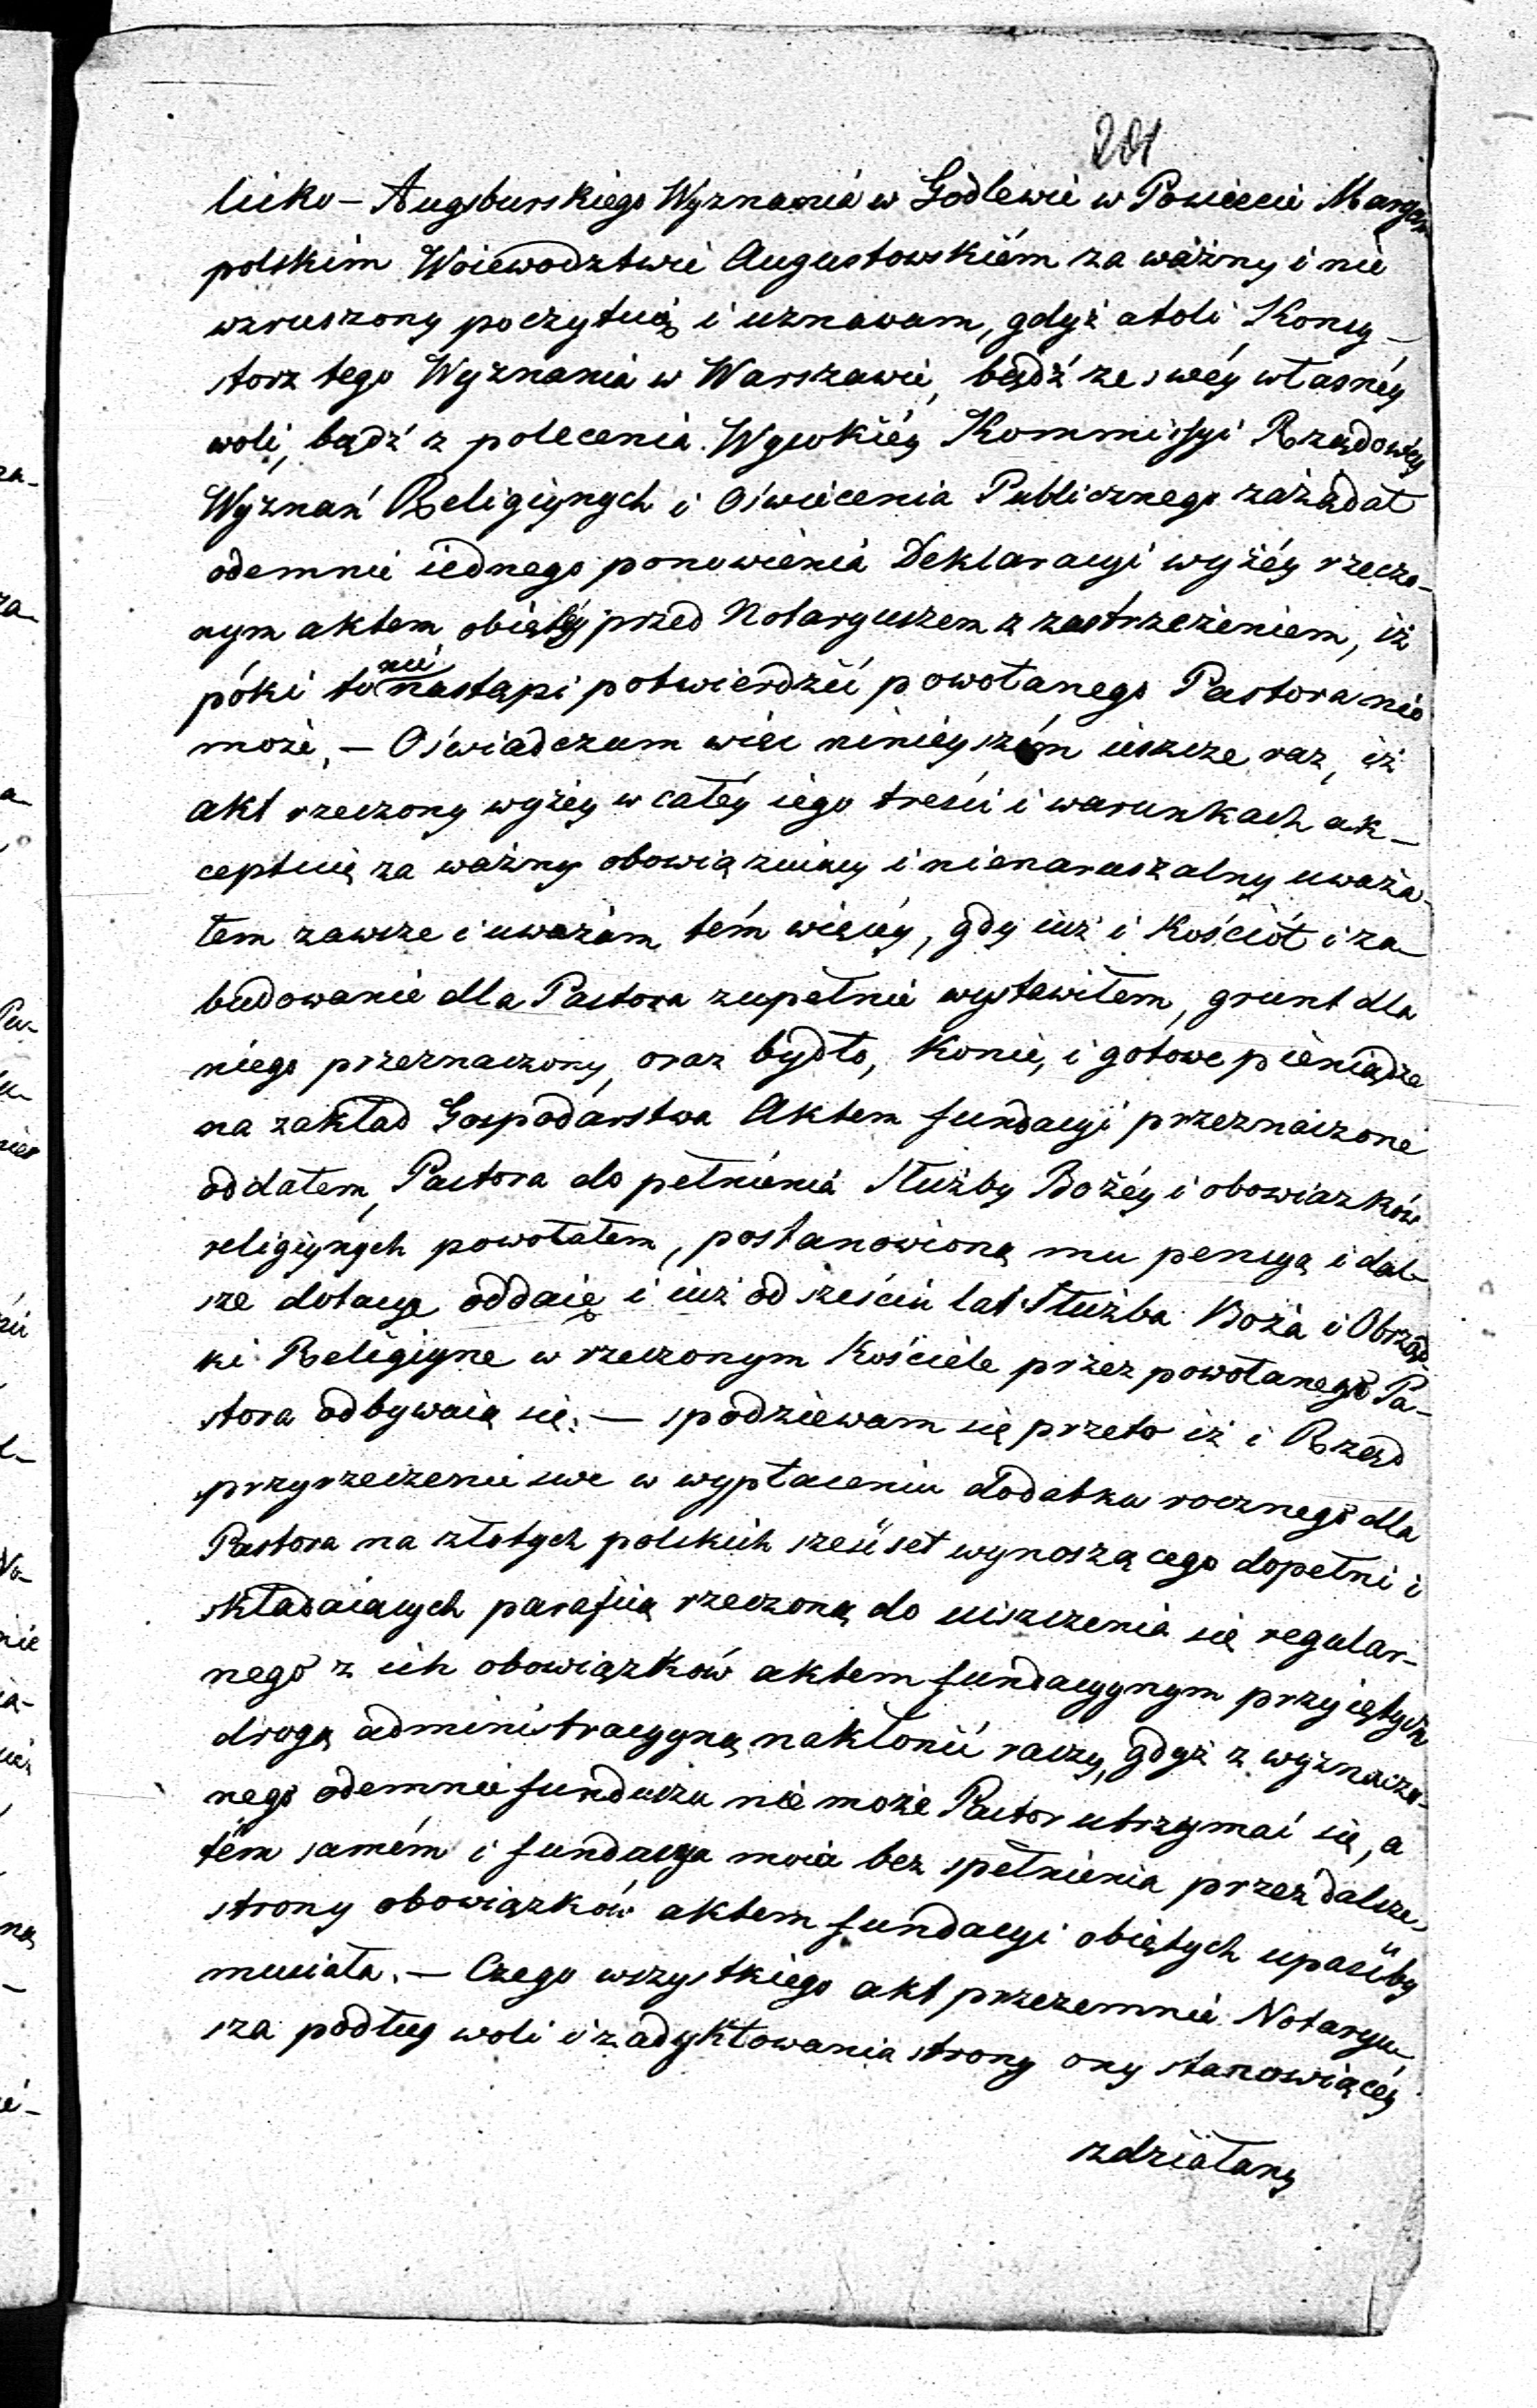 201
licko – Augsburskiego Wyznania w Godlewie w Powiecie Maryam
polskim Woiewodztwie Augustowskiém za ważny i nie
wzruszony poczytuię i uznawam, gdyż atoli Konsy-
storz tego Wyznania w Warszawie, bądź ze swéy własnéy
woli, bądź z polecenia Wysokiéy Kommissyi Rządowéy
Wyznań Religiynych i Oświecenia Publicznego zażądał
odemnie iednego ponowienia Deklaracyi wyżéy rzeczo-
nym aktem obiętéy przed Notaryuszem z zastrzeżeniem, iż
póki to nie nastąpi potwierdzić powołanego Pastora nie
może. – Oświadczam więc ninieyszém ieszcze raz, iż
akt rzeczony wyżéy w całéy iego treści i warunkach ak-
ceptuię za ważny obowiązuiący i nienaruszalny uważa-
łem zawsze i uważam, tém więcéy, gdy iuż i Kościół i za-
budowanie dla Pastora zupełnie wystawiłem, grunt dla
niego przeznaczony, oraz bydło, Konie, i gotowe pieniądze
na zakład Gospodarstwa Aktem fundacyi przeznaczone
oddałem, Pastora do pełnienia Służby Bożéy i obowiązków
religiynych powołałem, postanowioną mu pensyą i dal-
sze dotacye oddaię i iuż od sześciu lat Służba Boża i Obrząd-
ki Religiyne w rzeczonym Kościele przez powołanego Pa-
stora odbywaią się. – spodziewam się przeto iż i Rząd
przyrzeczenie swe w wypłaceniu dodatku rocznego dla
Pastora na złotych polskich sześćset wynoszącego dopełni i
składaiących parafią rzeczoną do uiszczenia się regular-
nego z ich obowiązków aktem fundacyynym przyiętych
drogą administracyyną nakłonić raczy, gdyż z wyznaczo-
nego odemnie funduszu nie może Pastor utrzymać się, a
tém samém i fundacya moia bez spełnienia przez dalsze
strony obowiązków aktem fundacyi obiętych upaśćby
musiała. – Czego wszystkiego akt przezemnie Notaryu-
sza podług woli i zadyktowania strony ony stanowiącéy
zdziałany